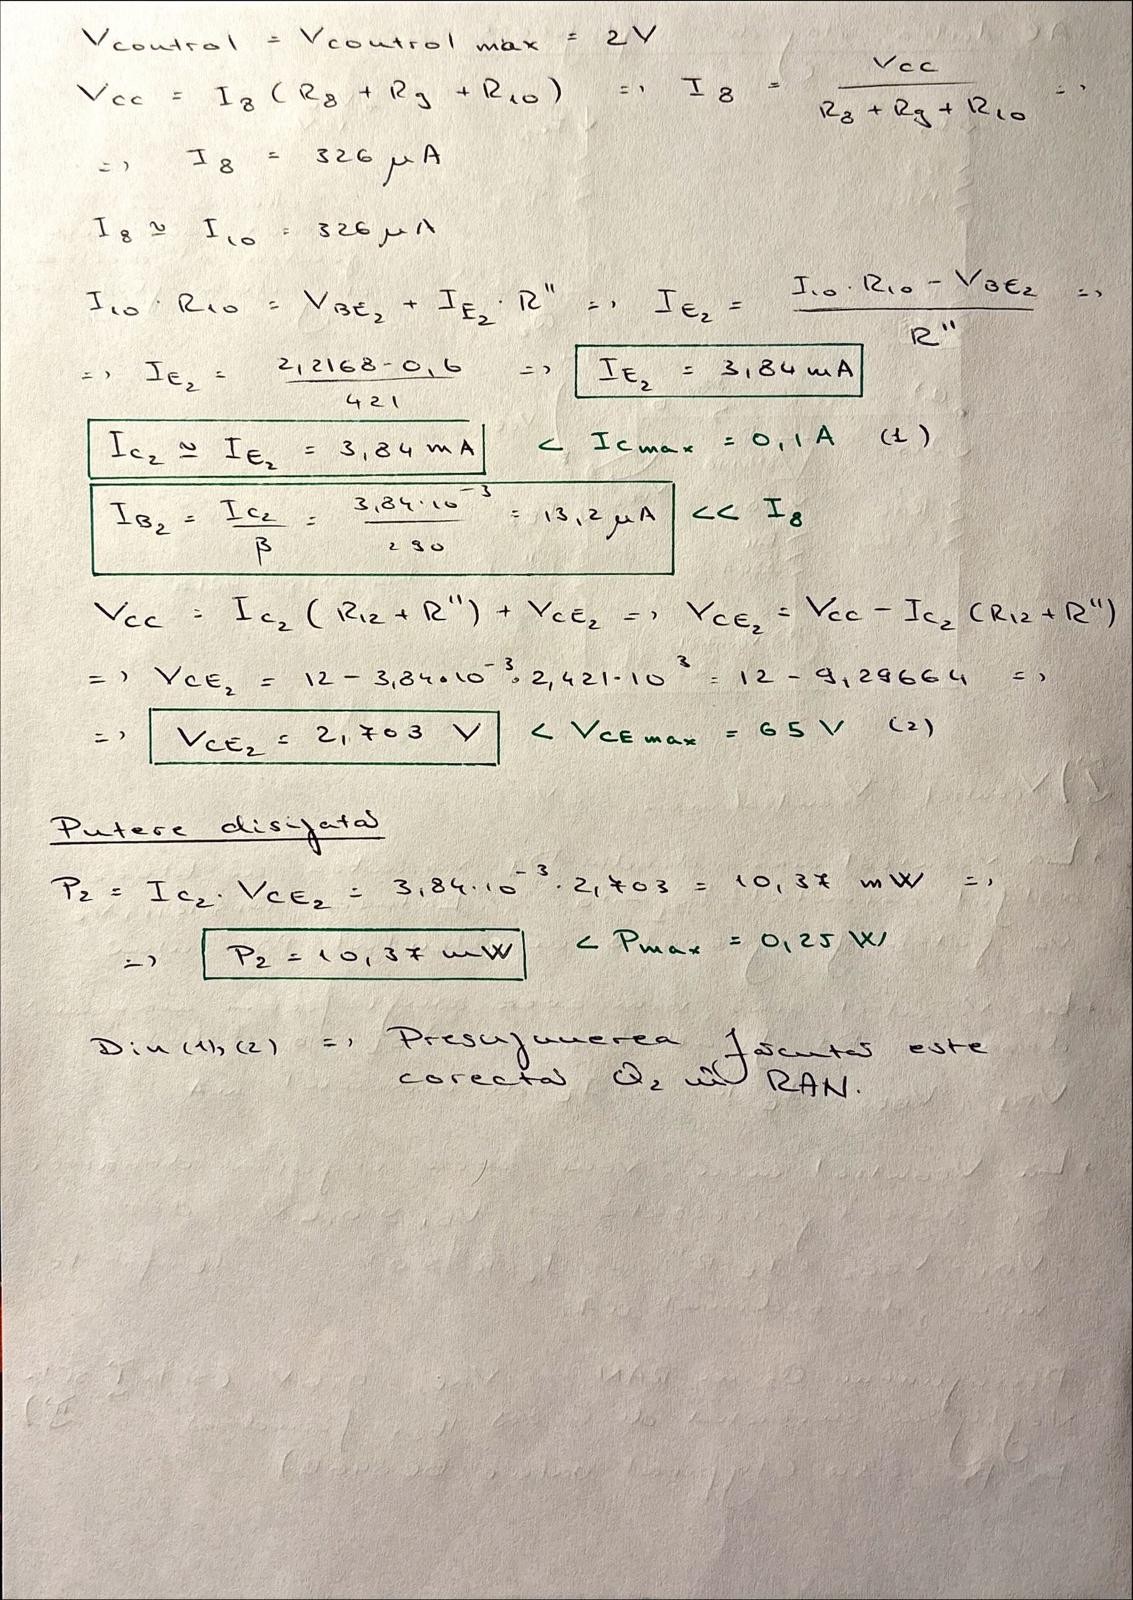 Vcontrol = Vcontrol max = 2V
Vcc = I8 (R8 + R9 + R10) => I8 = Vcc / (R8 + R9 + R10) =>
=> I8 = 326 μA
I8 ≃ I10 = 326 μA
I10 · R10 = VBE2 + IE2 · R" => IE2 = (I10 · R10 - VBE2) / R" =>
=> IE2 = (2,2168-0,6) / 421 => IE2 = 3,84 mA
IC2 ≃ IE2 = 3,84 mA < ICmax = 0,1 A (1)
IB2 = IC2 / β = 3,84·10^-3 / 290 = 13,2 μA << I8
Vcc = IC2 (R12 + R") + VCE2 => VCE2 = Vcc - IC2 (R12 + R")
=> VCE2 = 12 - 3,84·10^-3 · 2,421·10^3 = 12 - 9,29664 =>
=> VCE2 = 2,703 V < VCE max = 65 V (2)
Putere disipată
P2 = IC2 · VCE2 = 3,84·10^-3 · 2,703 = 10,37 mW =>
=> P2 = 10,37 mW < Pmax = 0,25 W
Din (1), (2) => Presupunerea făcută este
corectă Q2 în RAN.